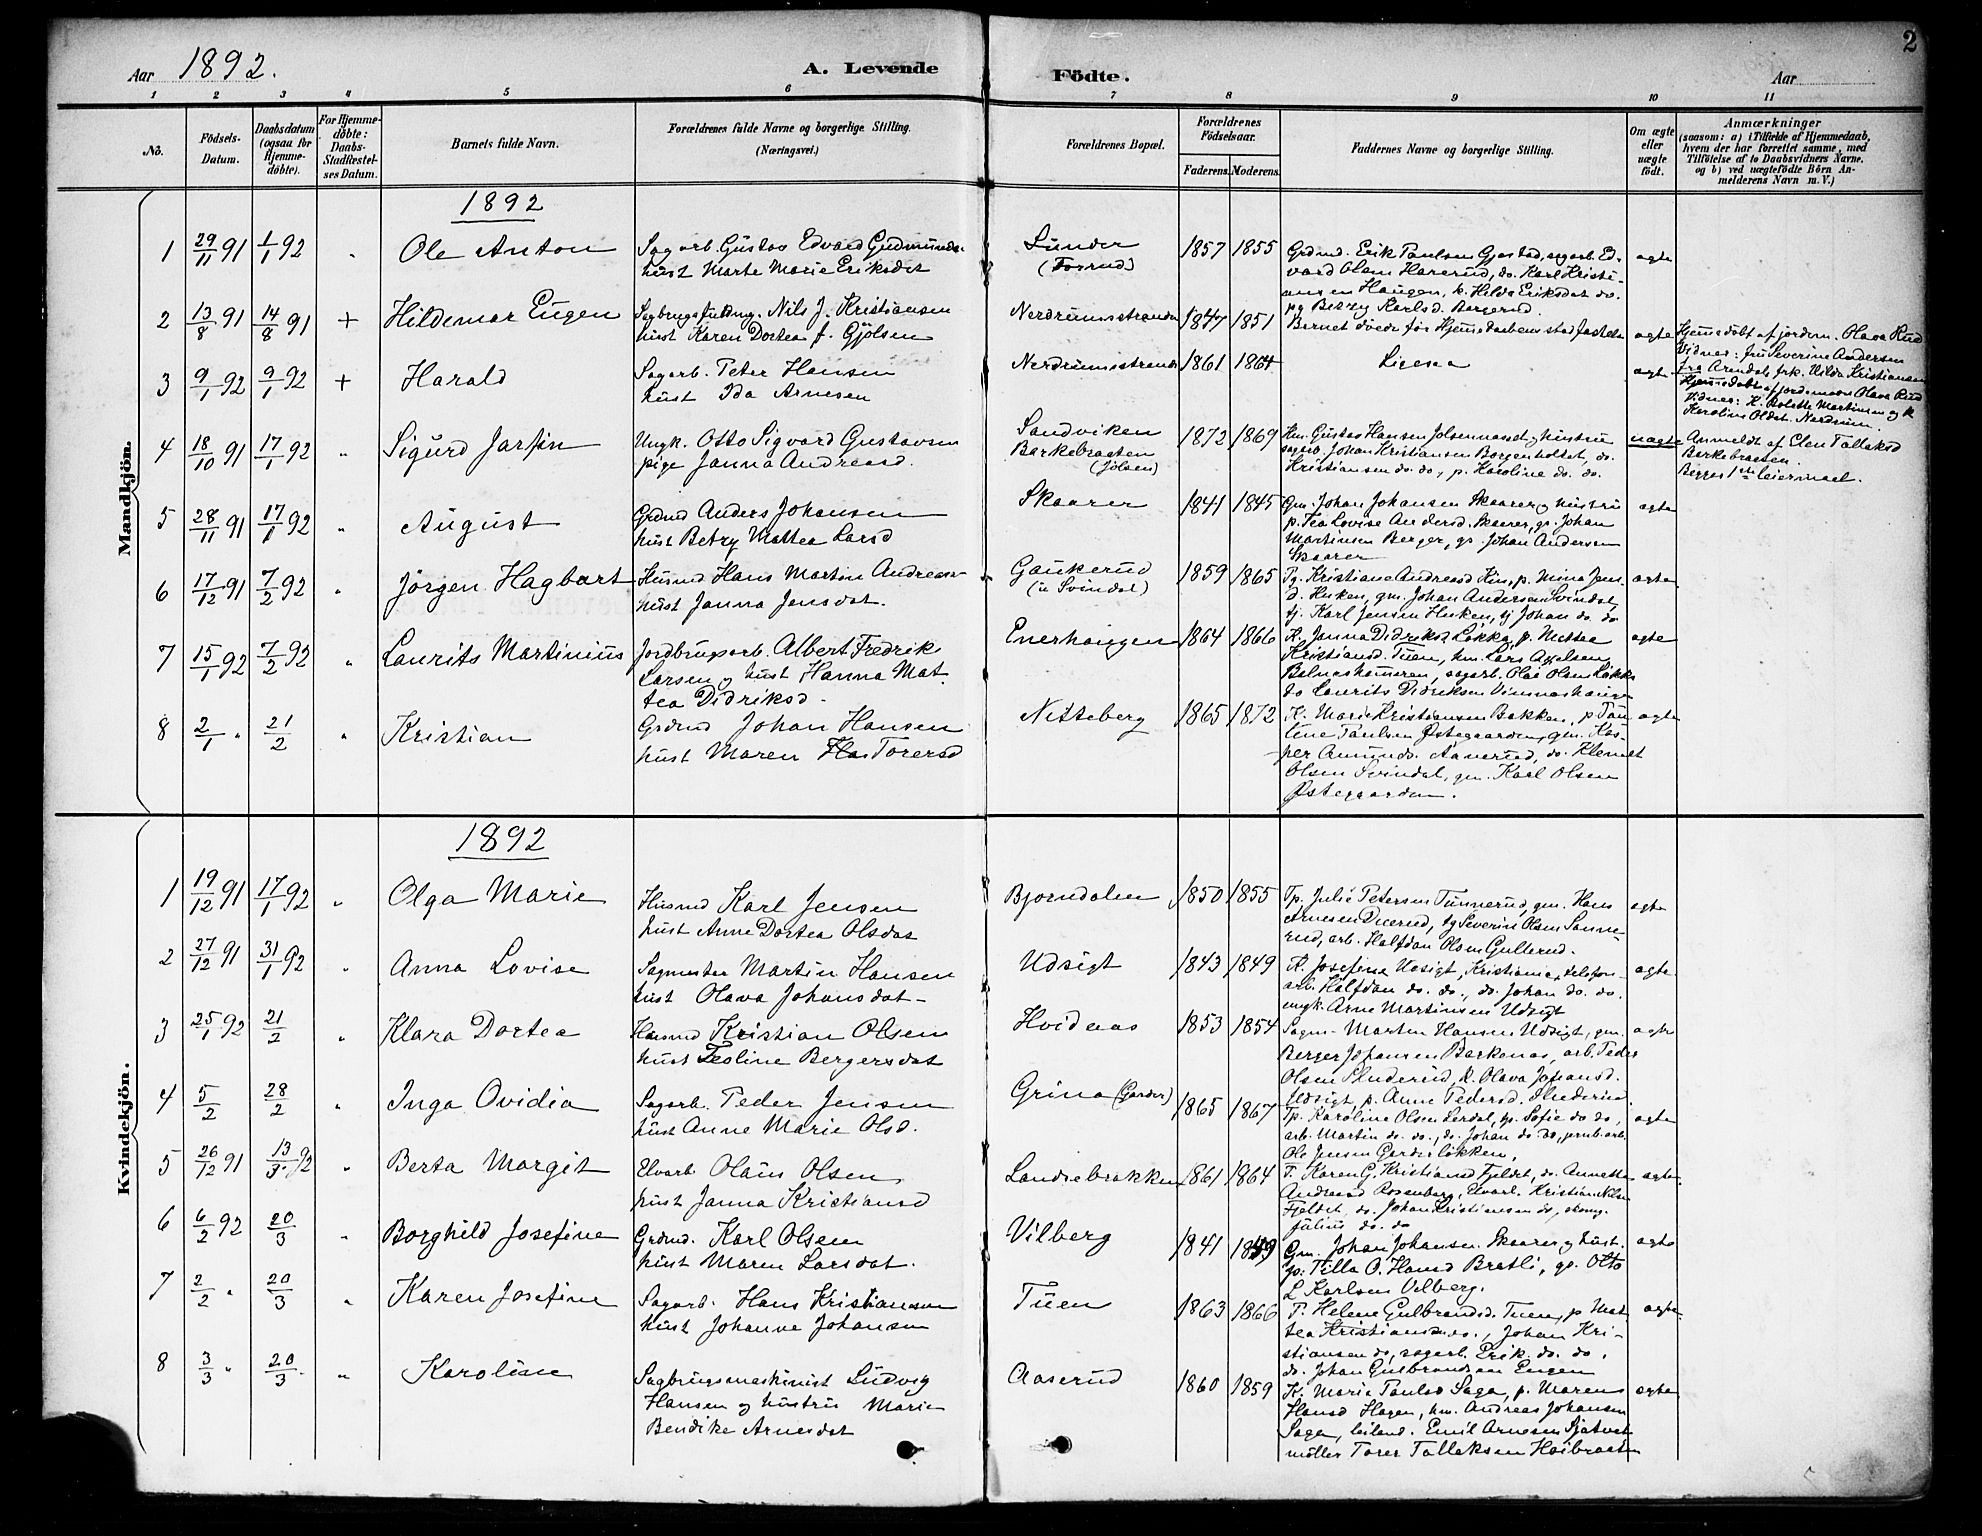 2
Aar 1892.
A. Levende Födte.
Aar
1 2 3 4 5 6 7 8 9 10 11
No.
Födsels-Datum.
Daabsdatum (ogsaa for Hjemmedöbte).
For Hjemmedöbte: Daabs-Stadfæstelses Datum.
Barnets fulde Navn.
Forældrenes fulde Navne og borgerlige Stilling. (Næringsvei.)
Forældrenes Bopæl.
Forældrenes Födselsaar.
Faderens. Moderens.
Faddernes Navne og borgerlige Stilling.
Om ægte eller uægte födt.
Anmærkninger
(saasom: a) i Tilfælde af Hjemmedaab,
hvem der har forrettet samme, med
Tilföielse af to Daabsvidners Navne.
og b) ved uægtefödte Börn An-
melderens Navn m. V.)
Mandkjön.
1892
1 29/11 91 1/1 92 " Ole Anton
Sagarb. Gustav Edvard Gudmunds.
hust Marte Marie Eriksdat
Lunder
(Fosrud)
1857 1855
Grdmd. Erik Paulsen Gjestad, sagarb. Ed-
vard Olsen Harerud, do. Karl Kristi-
ansen Haugen, k. Hilda Eriksdat do.
pg Betzy Karlsd. Borgerud.
ægte
2 13/8 91 14/8 91 + Hildemar Eugen
Sagbrugsfuldmg. Nils J. Kristiansen
hust Karen Dortea f. Gjølsen
Nerdrumsstranda
1847 1851
Barnet døede før Hjemmedaabens stadfæstelse
ægte
Hjemmedøbt af jordem. Olava Rud
Vidner: fru Severine Andersen
fra Arendal, frk. Hilda Kristiansen
3 9/1 92 9/1 92 + Harald
Sagarb. Peter Hansen
hust Ida Arnesen
Nerdrumsstranda
1861 1864
Ligesaa
ægte
Hjemmedøbt af jordemoder Olava Rud
Vidner: K. Bolette Martinsen og k
Karoline Oldst. Nerdrum.
4 18/10 91 17/1 92 " Sigurd Jarfin
Ungk. Otto Sigvard Gustavsen
pige Janna Andreasd.
Sandviken
Barkebraaten
(Jølsen)
1872 1869
Hm. Gustav Hansen Jølsennæsset og hustru
sagarb. Johan Kristiansen Borgenholtet, do.
Kristiansen do. do., p. Karoline do. do.
uægte
Anmeldt af Olen Tallaksd
Berkebraaten.
Begges 1ste leiermaal.
5 28/11 91 17/1 92 " August
Grdmd Anders Johansen
hust Betzy Mattea Larsd
Skaarer
1841 1845
Gm. Johan Johansen Skaarer og hustru
p. Tea Lovise Andersd. Skaarer, gs. Johan
Martinsen Berger, gs. Johan Andersen
Skaarer
ægte
6 17/12 91 7/2 92 " Jörgen Hagbart
Husmd Hans Martin Andreas-
hust Janna Jensdat.
Gaukerud
(u Svindal)
1859 1865
Pg. Kristiane Andreasd Kin, p. Mina Jens
d. Husken, gm. Johan Andersen Svindal,
tj. Karl Jensen Husken, tj Johan do. do
ægte
7 15/1 92 7/2 92 " Laurits Martinius
Jordbrugsarb. Albert Fredrik
Larsen og hust Hanna Mat-
tea Didriksd.
Enerhaugen
1864 1866
K. Janna Didriksd Løkka, p. Mattea
Kristiansd. Tuen, hm. Lars Axelsen
Belnashammeren, sagarb. Olai Olsen Løkka
do Laurits Didriksen Vinnashaugen
ægte
8 2/1 " 21/2 " Kristian
Grdmd Johan Hansen
hust Maren Torersd
Nitteberg
1865 1872
K. Marie Kristiansen Bakken, p Pau
line Paulsen Østegaarden, gm. Kas-
per Amunds. Aamerud, do. Klemet
Olsen Svindal, gm. Karl Olsen
Østegaarden.
ægte
Kvindekjön.
1892
1 19/12 91 17/1 92 " Olga Marie
Husmd Karl Jensen
hust Anne Dortea Olsdat
Bjørndalen
1850 1855
Tp. Julie Petersen Tunnerud, gm. Hans
Arnesen Duerud, tg Severin Olsen Sanne-
rud, arb. Halfdan Olsen Gullerud.
ægte
2 27/12 91 31/1 92 " Anna Lovise
Sagmester Martin Hansen
hust Olava Johansdat
Udsigt
1843 1849
K. Josefine Udsigt, Kristiania, telefon-
arb. Halfdan do. do., do. Johan do. do.
ungk. Arne Martinsen Udsigt
ægte
3 25/1 92 21/2 " Klara Dortea
Husmd Kristian Olsen
hust Teoline Bergersdat
Hvidnæs
1853 1854
Sagm. Martin Hansen Udsigt, gm.
Berger Johansen Barkenæs, arb. Peder
Olsen Sluderud, k. Olava Johansd.
Udsigt p. Anne Pedersd. Sluderud
ægte
4 5/2 28/2 " Inga Ovidia
Sagarb. Peder Jensen
hust Anne Marie Olsd.
Grina (Garder)
1865 1867
Tp. Karoline Olsen Lerdal, tp. Sofie do do,
arb. Martin do. do., do. Johan do do, grubarb.
Ole Jensen Garderløkken,
ægte
5 26/12 91 13/3 92 " Berta Margit
Elvarb Olaus Olsen
hust Janna Kristiansd
Landsebakken
1861 1864
P. Karen G. Kristiansd Fjeldet, do. Annette
Andreasd Rosenberg, Elvarb. Kristian Nilsen
Fjeldet, do. Johan Kristiansen do, skomg.
Julius do. do
ægte
6 6/2 92 20/3 " Borghild Josefine
Grdmd. Karl Olsen
hust Maren Larsdat.
Vilberg
1841 1849
Gm. Johan Johansen Skaarer og hust.
gp. Tilla O. Hansd Bratli, gs. Otto
L Karlsen Vilberg.
ægte
7 2/2 " 20/3 " Karen Josefine
Sagarb. Hans Kristiansen
hust Johanne Johansen
Tuen
1863 1866
P. Helene Gulbrandsd. Tuen, p Mat
tea Kristiansen do., Johan Kri-
stiansen do, sagarb. Erik do. do.
do. Johan Gulbrandsen Engen
ægte
8 3/3 " 20/3 " Karoline
Sagbrugsmaskinist Ludvig
Hansen og hustru Marie
Bendike Arnesdat
Aaserud
1860 1859
K. Marie Paulsd Saga, p. Maren
Hansd Hagen, hm. Andreas Johansen
Saga, leiland. Emil Arnesen Sjatvet
møller Torer Tallaksen Høibraaten
ægte